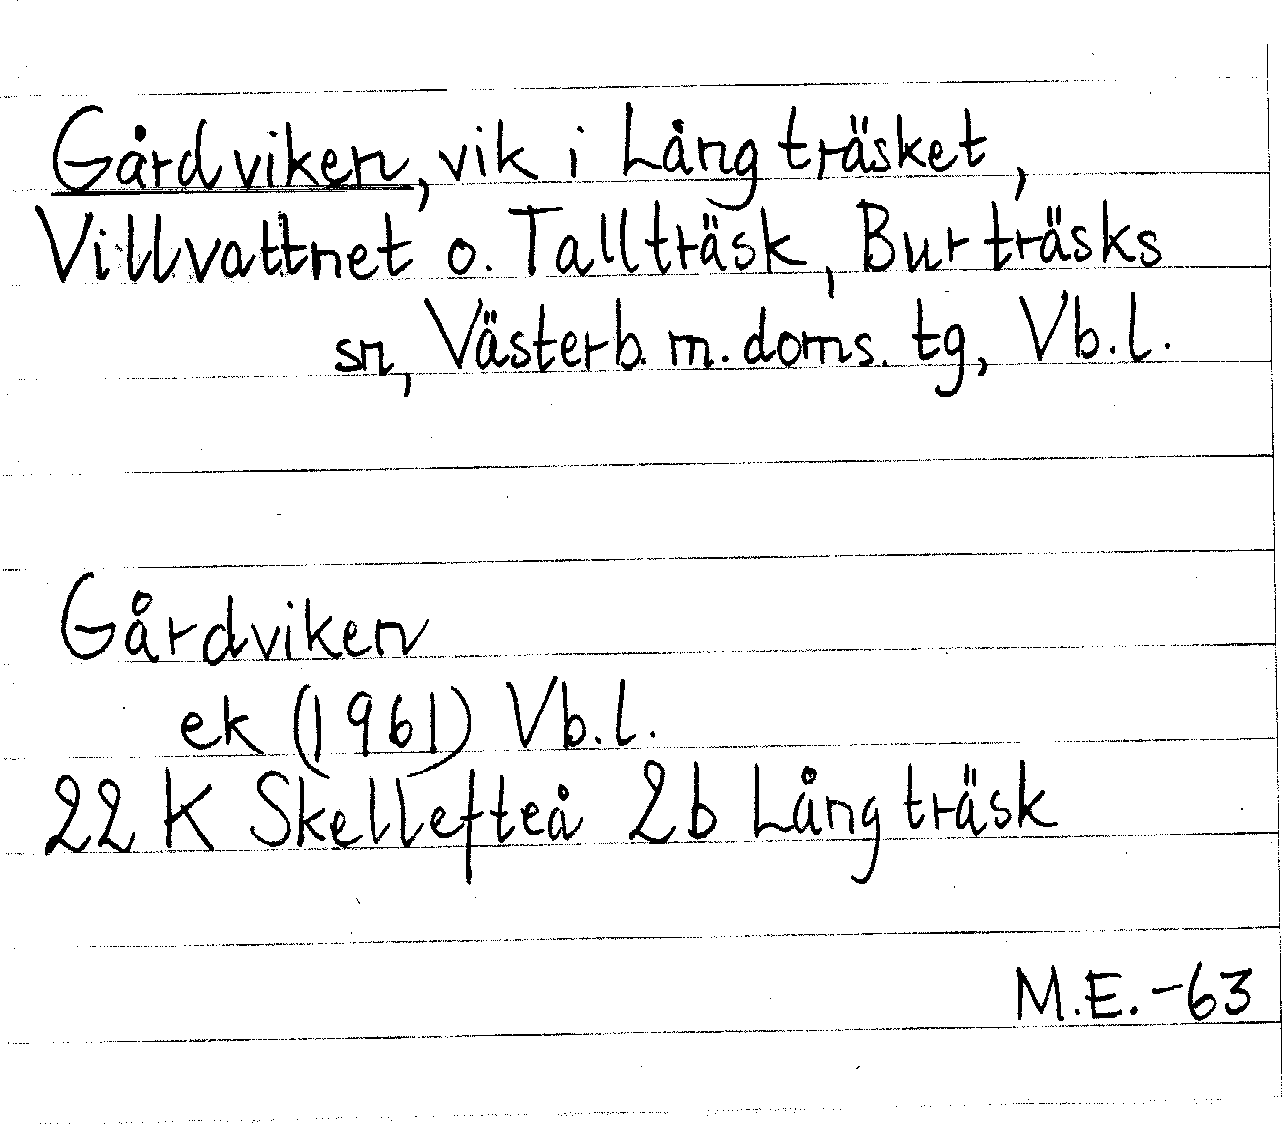 Gårdviken, vik i Långträsket,
Villvattnet o. Tallträsk, Burträsks
sn, Västerb. m. doms. tg, Vb.l.
Gårdviken
ek (1961) Vb.l.
22 K Skellefteå 2b Långträsk
M.E.-63